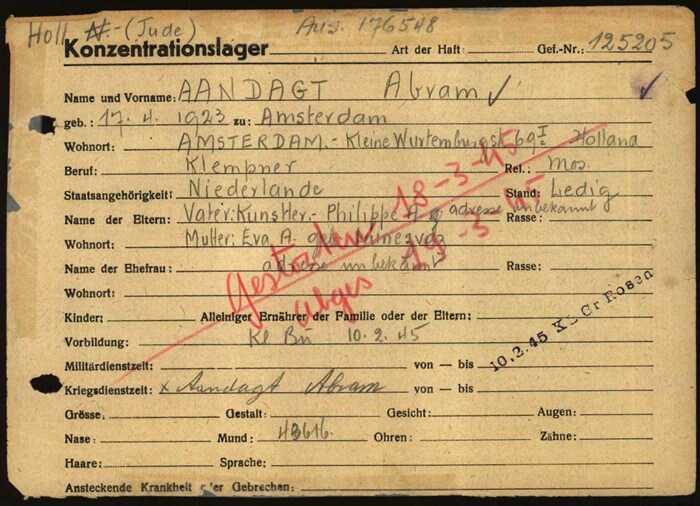 Holl. N.- (Jude) Aus. 176548
Konzentrationslager Art der Haft: Gef.-Nr.: 125205
Name und Vorname: AANDAGT Abram
geb.: 17.4.1923 zu: Amsterdam
Wohnort: AMSTERDAM.- Kleine Wurtemburgst. 69 I Holland
Beruf: Klempner Rel.: Mos.
Staatsangehörigkeit: Niederlande Stand: Ledig
Name der Eltern: Vater: Kunstler.- Philippe A. adresse unbekannt Rasse:
Wohnort: Mutter: Eva A. geb.
Name der Ehefrau: adresse unbekannt Rasse:
Wohnort:
Gestorben 18-3-45
abges 19-5-45
Kinder: Alleiniger Ernährer der Familie oder der Eltern:
Vorbildung: Kl Bu 10.2.45
10.2.45 K.L. Gr Rosen
Militärdienstzeit: von — bis
Kriegsdienstzeit: x Aandagt Abram von — bis
Grösse: Gestalt: Gesicht: Augen:
Nase: Mund: 43616. Ohren: Zähne:
Haare: Sprache:
Ansteckende Krankheit oder Gebrechen: